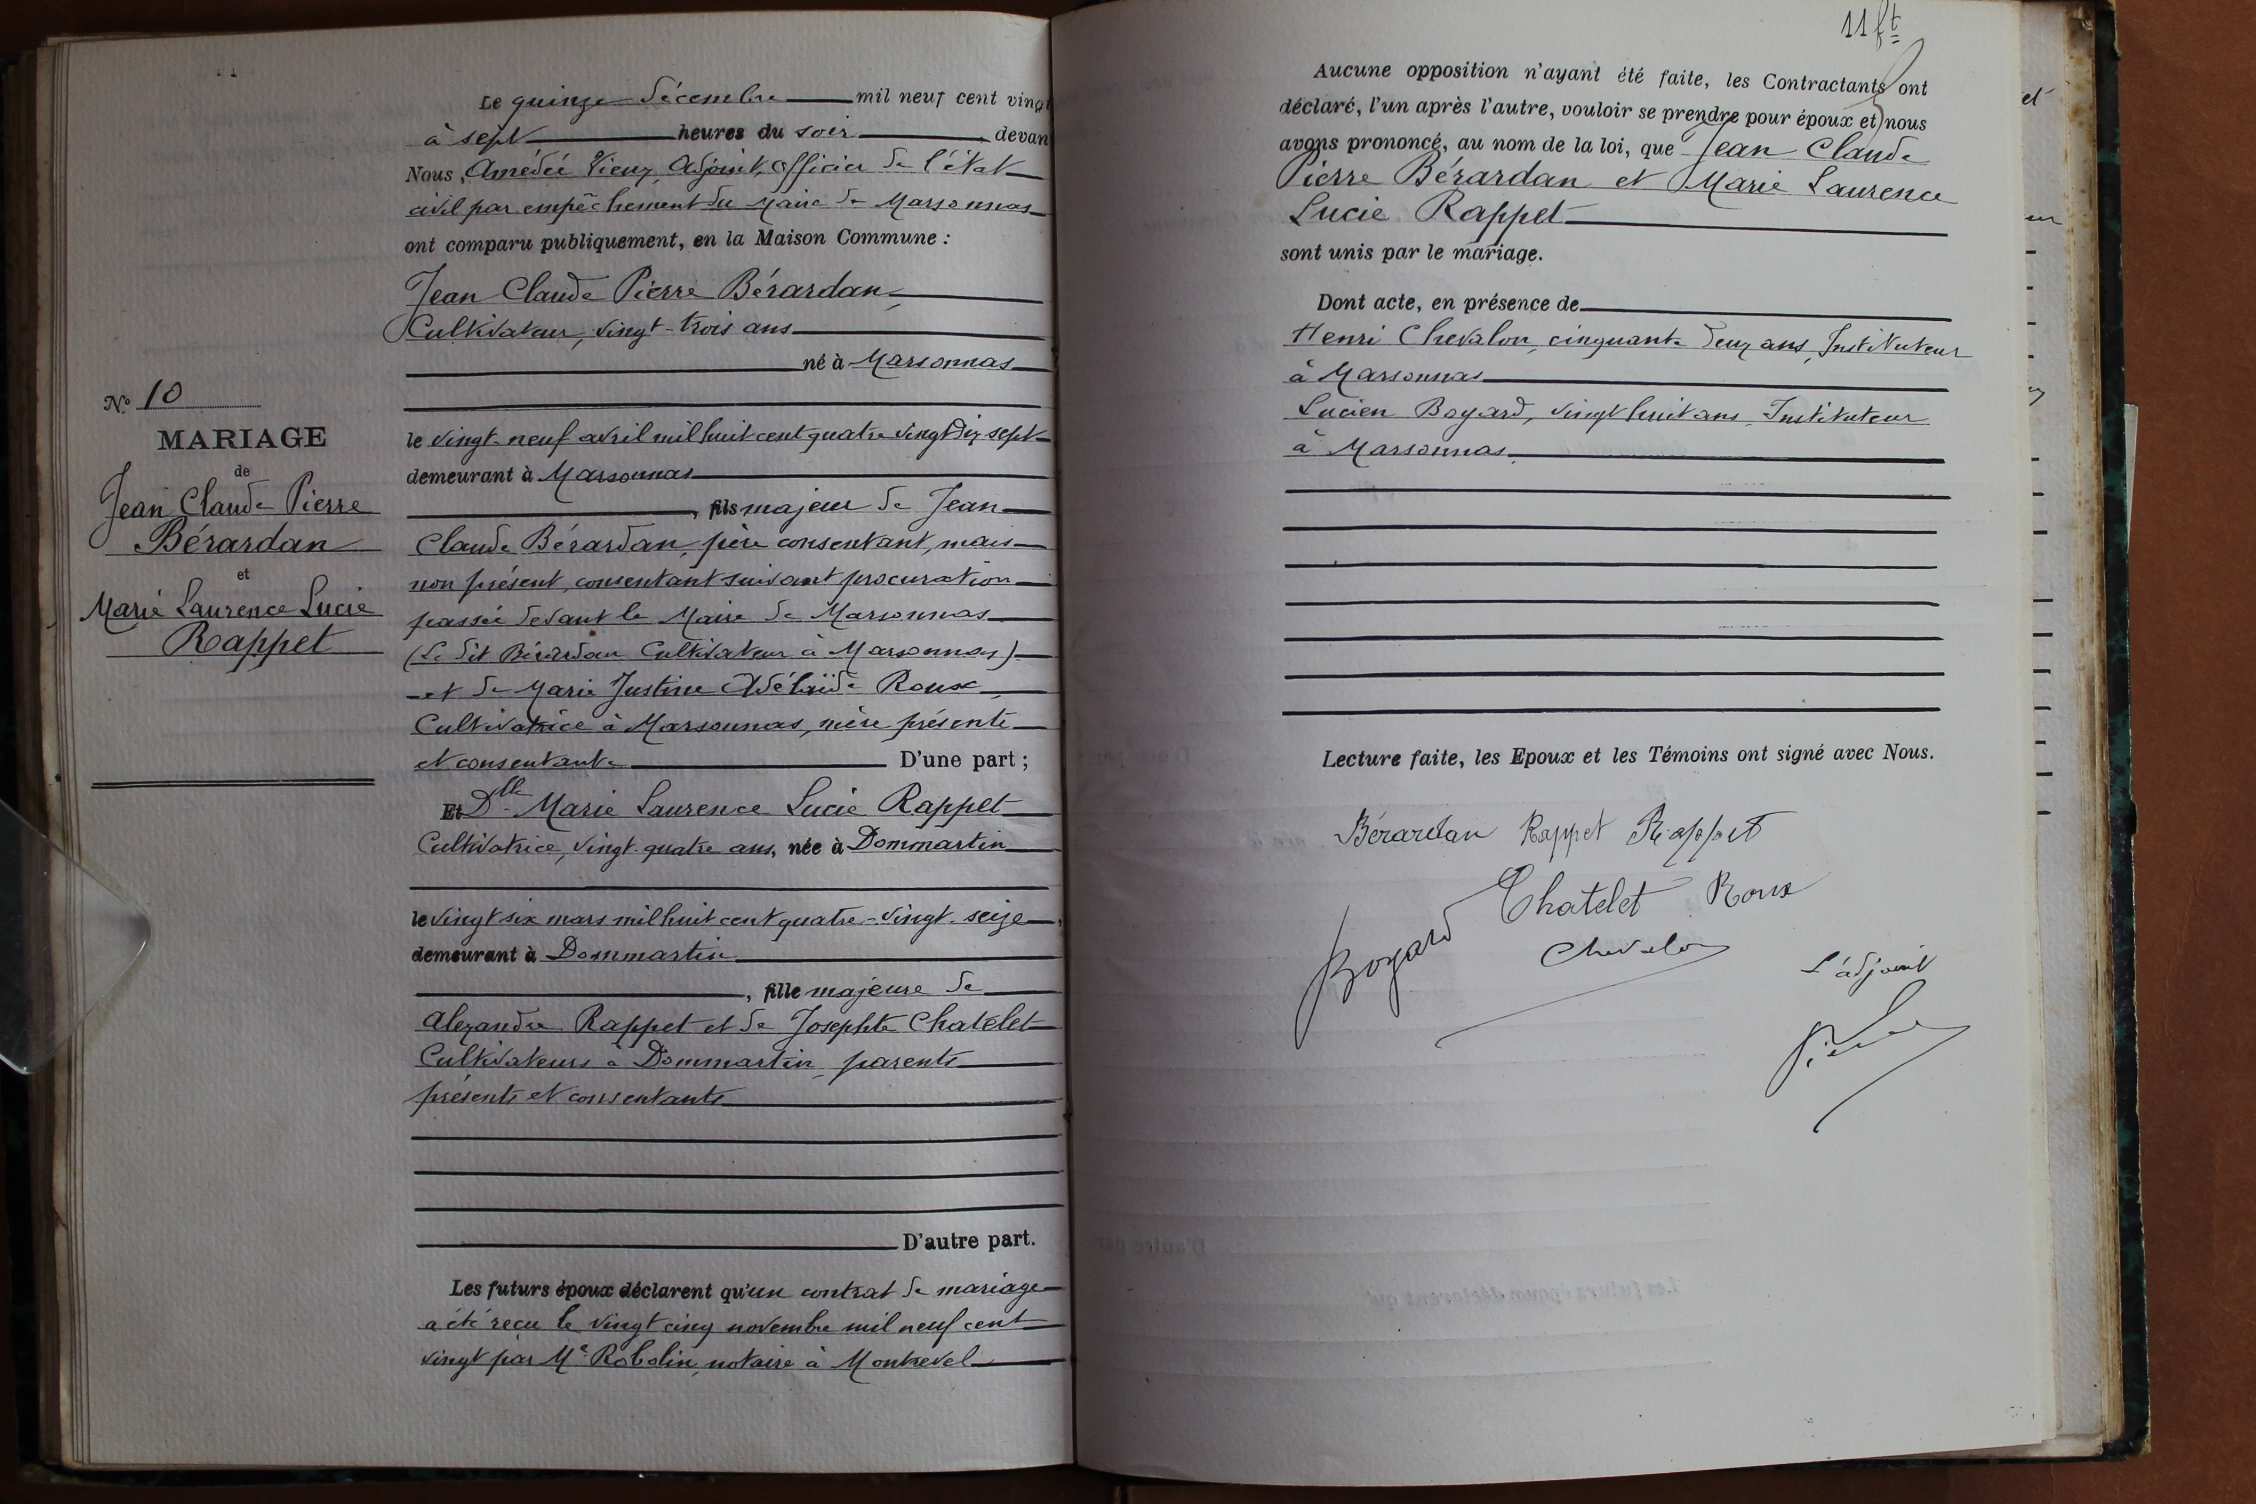 Le quinze décembre mil neuf cent vingt
à sept heures du soir devan
Nous, Amédée Vieux, Adjoint, officier de l'état
civil par empêchement du Maire de Marsonnas
ont comparu publiquement, en la Maison Commune :
Jean Claude Pierre Bérardan,
Cultivateur, vingt-trois ans
né à Marsonnas
le vingt-neuf avril mil huit cent quatre vingt dix sept
demeurant à Marsonnas
, fils majeur de Jean
Claude Bérardan, père consentant, mais
non présent, consentant suivant procuration
passée devant le Maire de Marsonnas
(Le dit Bérardan Cultivateur à Marsonnas)
et de Marie Justine Adélaïde Roux
Cultivatrice à Marsonnas, mère présente
et consentante D'une part ;
Et Dlle Marie Laurence Lucie Rappet
Cultivatrice, vingt-quatre ans, née à Dommartin
le vingt six mars mil huit cent quatre-vingt-seize,
demeurant à Dommartin
, fille majeure de
Alexandre Rappet et de Josephte Chatelet
Cultivateurs à Dommartin, parents
présents et consentants
D'autre part.
Les futurs époux déclarent qu'un contrat de mariage
a été reçu le vingt cinq novembre mil neuf cent
vingt par Me Robolin, notaire à Montrevel
No 10
MARIAGE
de
Jean Claude Pierre
Bérardan
et
Marie Laurence Lucie
Rappet
11 ft
Aucune opposition n'ayant été faite, les Contractants ont
déclaré, l'un après l'autre, vouloir se prendre pour époux et nous
avons prononcé, au nom de la loi, que Jean Claude
Pierre Bérardan et Marie Laurence
Lucie Rappet
sont unis par le mariage.
Dont acte, en présence de
Henri Chevalon, cinquante deux ans, Instituteur
à Marsonnas
Lucien Boyard, vingt huit ans, Instituteur
à Marsonnas.
Lecture faite, les Epoux et les Témoins ont signé avec Nous.
Bérardan Rappet Rappet
Chatelet Roux
Boyard Chevalon
L'adjoint
Vieux